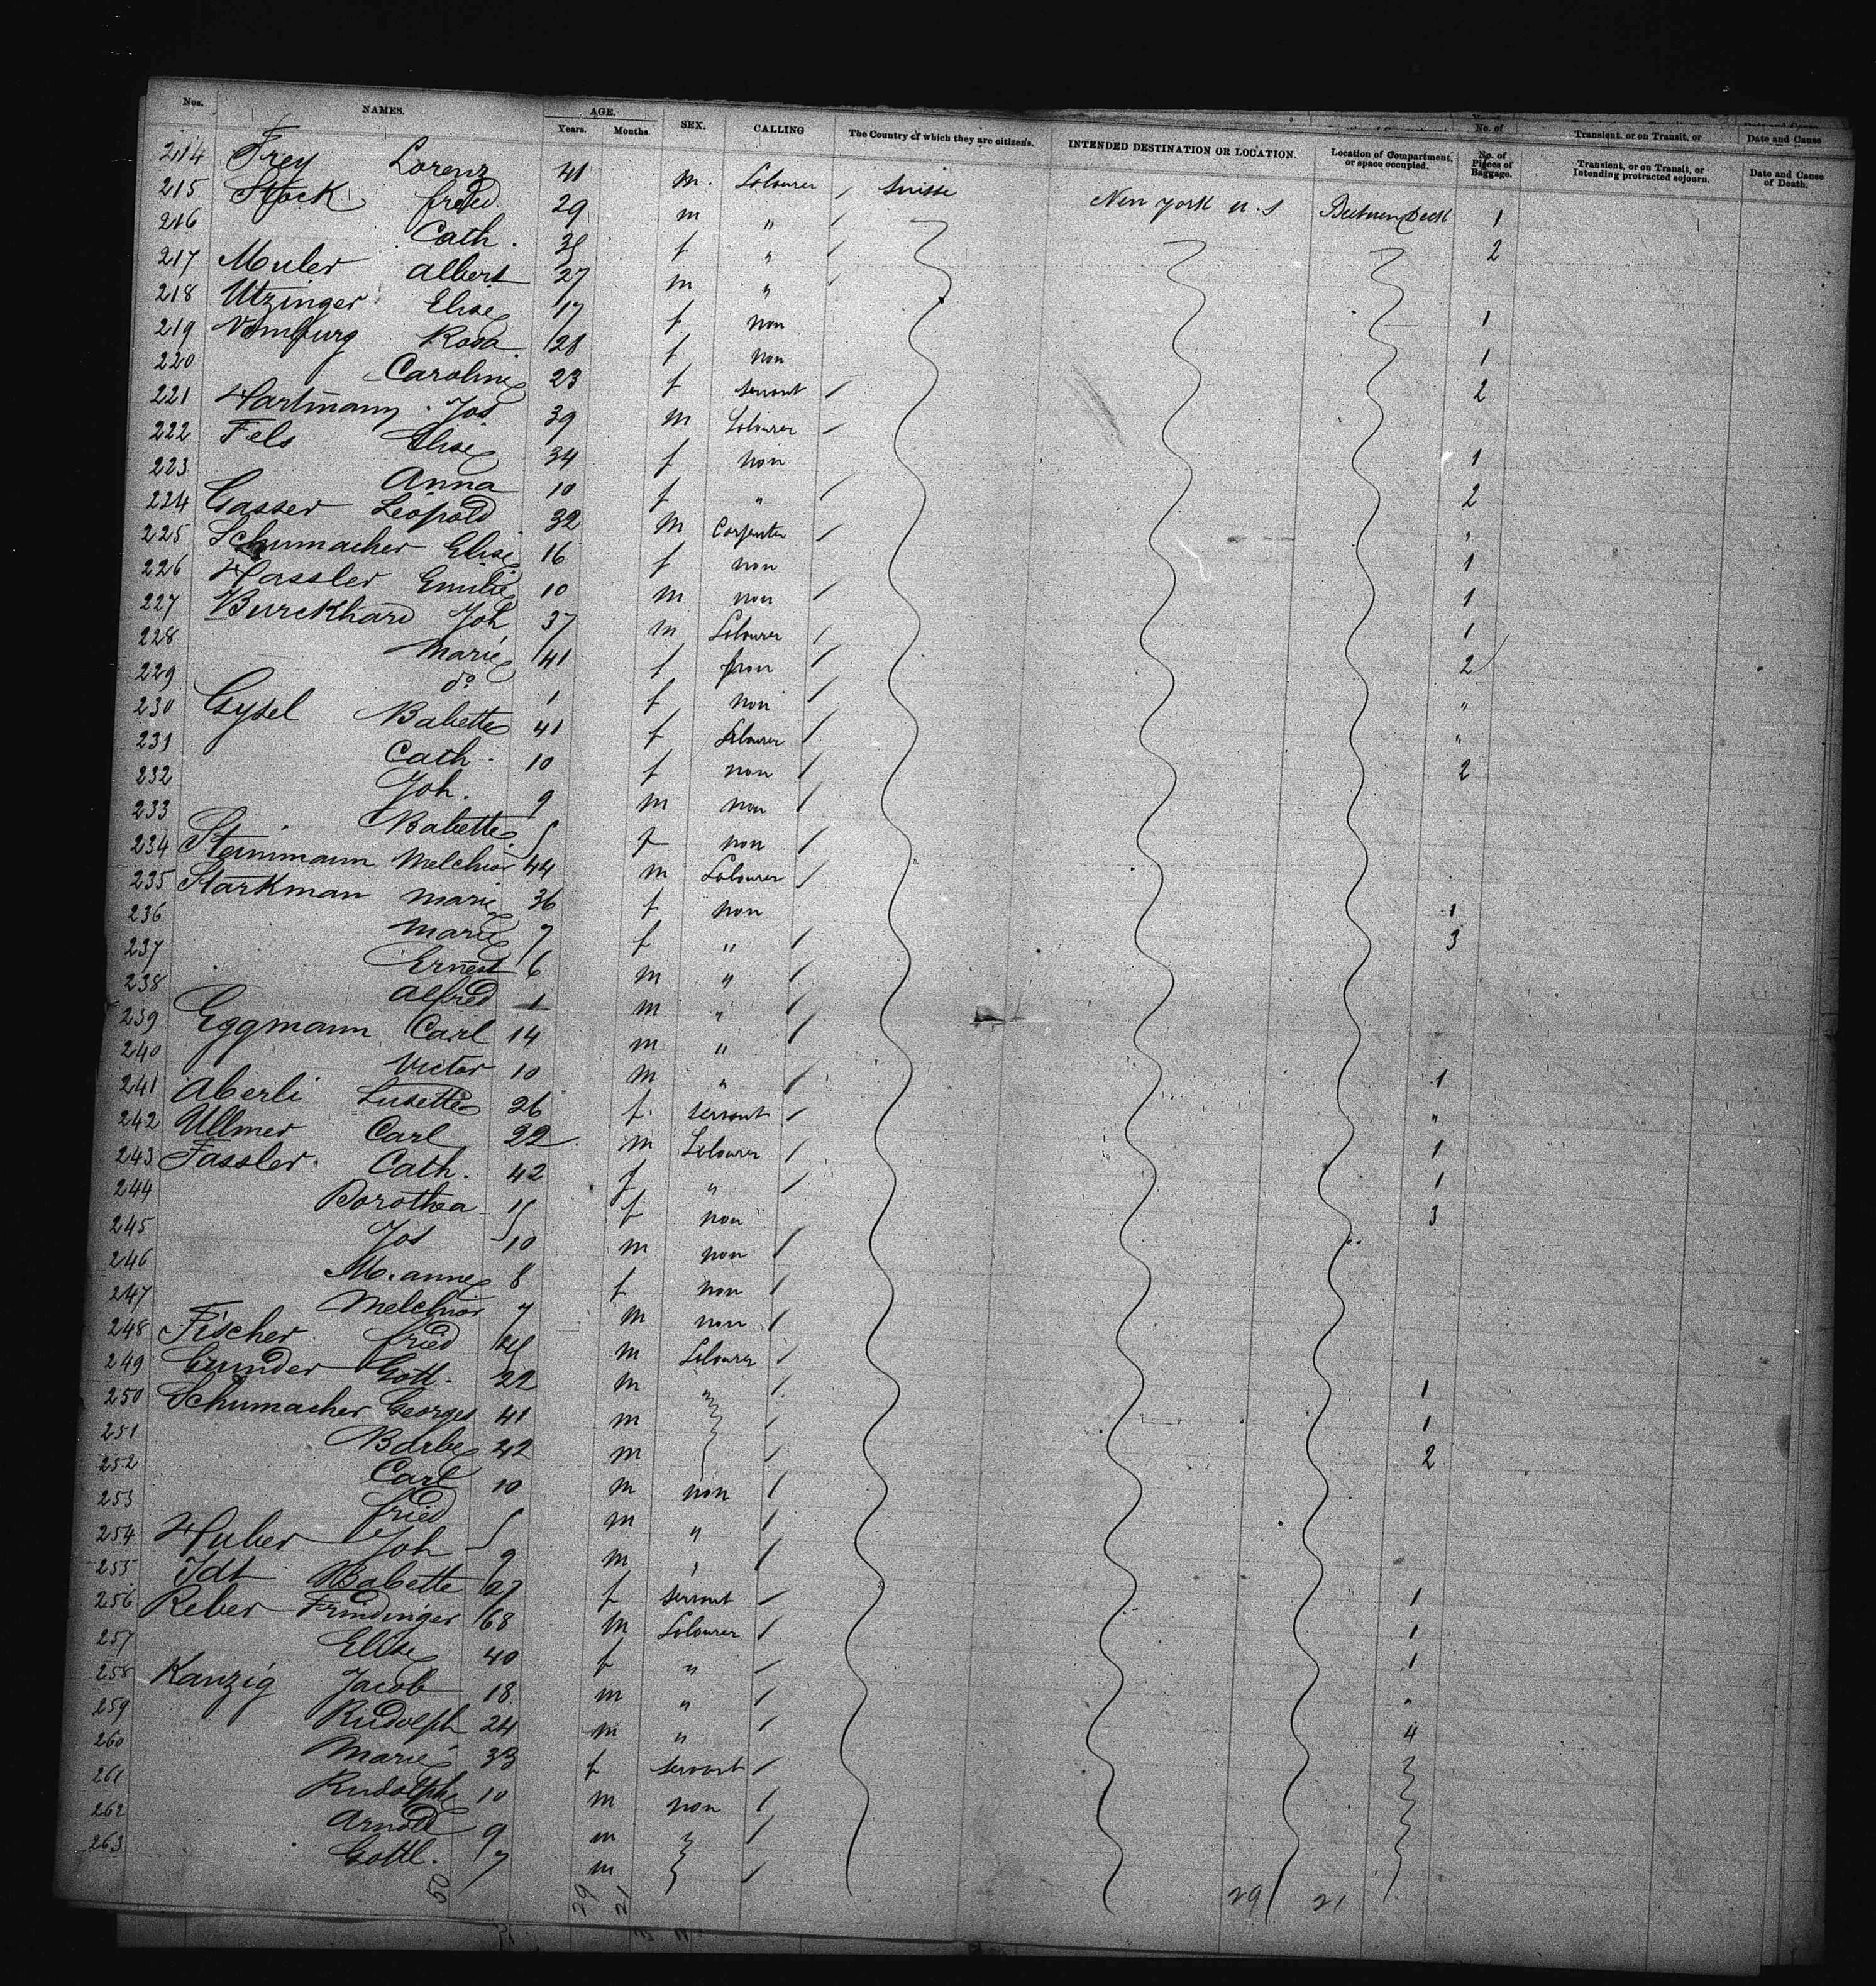 Nos. NAMES. AGE. Years. Months. SEX. CALLING The Country of which they are citizens. INTENDED DESTINATION OR LOCATION. Location of Compartment, or space occupied. No. of Pieces of Baggage. Transient, or on Transit, or Intending protracted sojourn. Date and Cause of Death.
No. of Transient, or on Transit, or Date and Cause
214 Frey Lorenz 41 m. Labourer / Suisse New york u.s Between Deck 1
215 Stock fried 29 m " / 2
216 Cath. 35 f " /
217 Muler albert 27 m " / 1
218 Utzinger Elise 17 f non 1
219 Rosa 28 f non 2
220 Caroline 23 f servant /
221 Hartmann Jos 39 m Labourer / 1
222 Fels Elise 34 f non 2
223 Anna 10 f " / "
224 Gasser Leopold 32 m Carpenter / 1
225 Schumacher Elise 16 f non 1
226 Hassler Emilie 10 m non / 1
227 Burckhard Joh 37 m Labourer / 2
228 Marie 41 f non / "
229 do 1 f non / "
230 Gysel Babette 41 f Labourer / 2
231 Cath. 10 f non /
232 Joh. 9 m non /
233 Babette 5 f non /
234 Steinmann Melchior 44 m Labourer / 1
235 Starkman Marie 36 f non 3
236 Marie 7 f " /
237 Ernest 6 m " /
238 Alfred 1 m " /
239 Eggmann Carl 14 m " / 1
240 Victor 10 m " / "
241 Aberli Lusette 26 f. servant / 1
242 Ullmer Carl 22 m Labourer / 1
243 Fassler Cath. 42 f " / 3
244 Dorothea 15 f non
245 Jos 10 m non /
246 M. anne 8 f non /
247 Melchior 7 m non /
248 Fischer fried 25 m Labourer / 1
249 Grunder Gott. 22 m " / 1
250 Schumacher Georges 41 m / 2
251 Barbe 42 m /
252 Carl 10 m non /
253 fried 5 m " /
254 Huber Joh 9 m " / 1
255 Idt Babette 27 f servant / 1
256 Reber 68 m Labourer / 1
257 Elise 40 f " / "
258 Kanzig Jacob 18 m " / 4
259 Rudolph 24 m " /
260 Marie 33 f servant /
261 Rudolph 10 m non /
262 Arnold 9 m /
263 Gottl. 7 m /
50 29 21 29 21